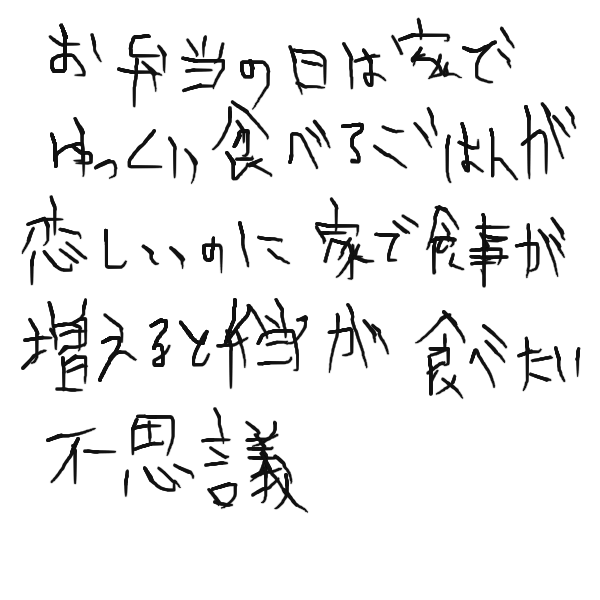 お弁当の日は家で
ゆっくり食べるごはんが
恋しいのに家で食事が
増えると弁当が食べたい
不思議